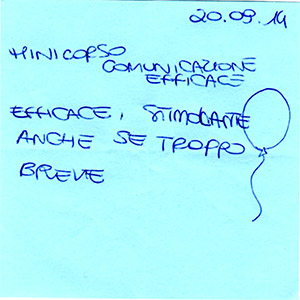 20.09.14
MINICORSO
COMUNICAZIONE
EFFICACE
EFFICACE, STIMOLANTE
ANCHE SE TROPPO
BREVE